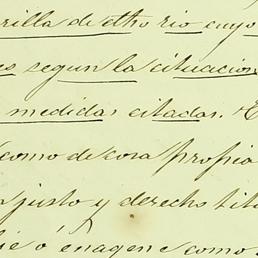 rilla de dho rio cuyo
es segun la cituacion
medidas citadas. E
como de cosa propia
justo y derecho tit
é ó enagene como